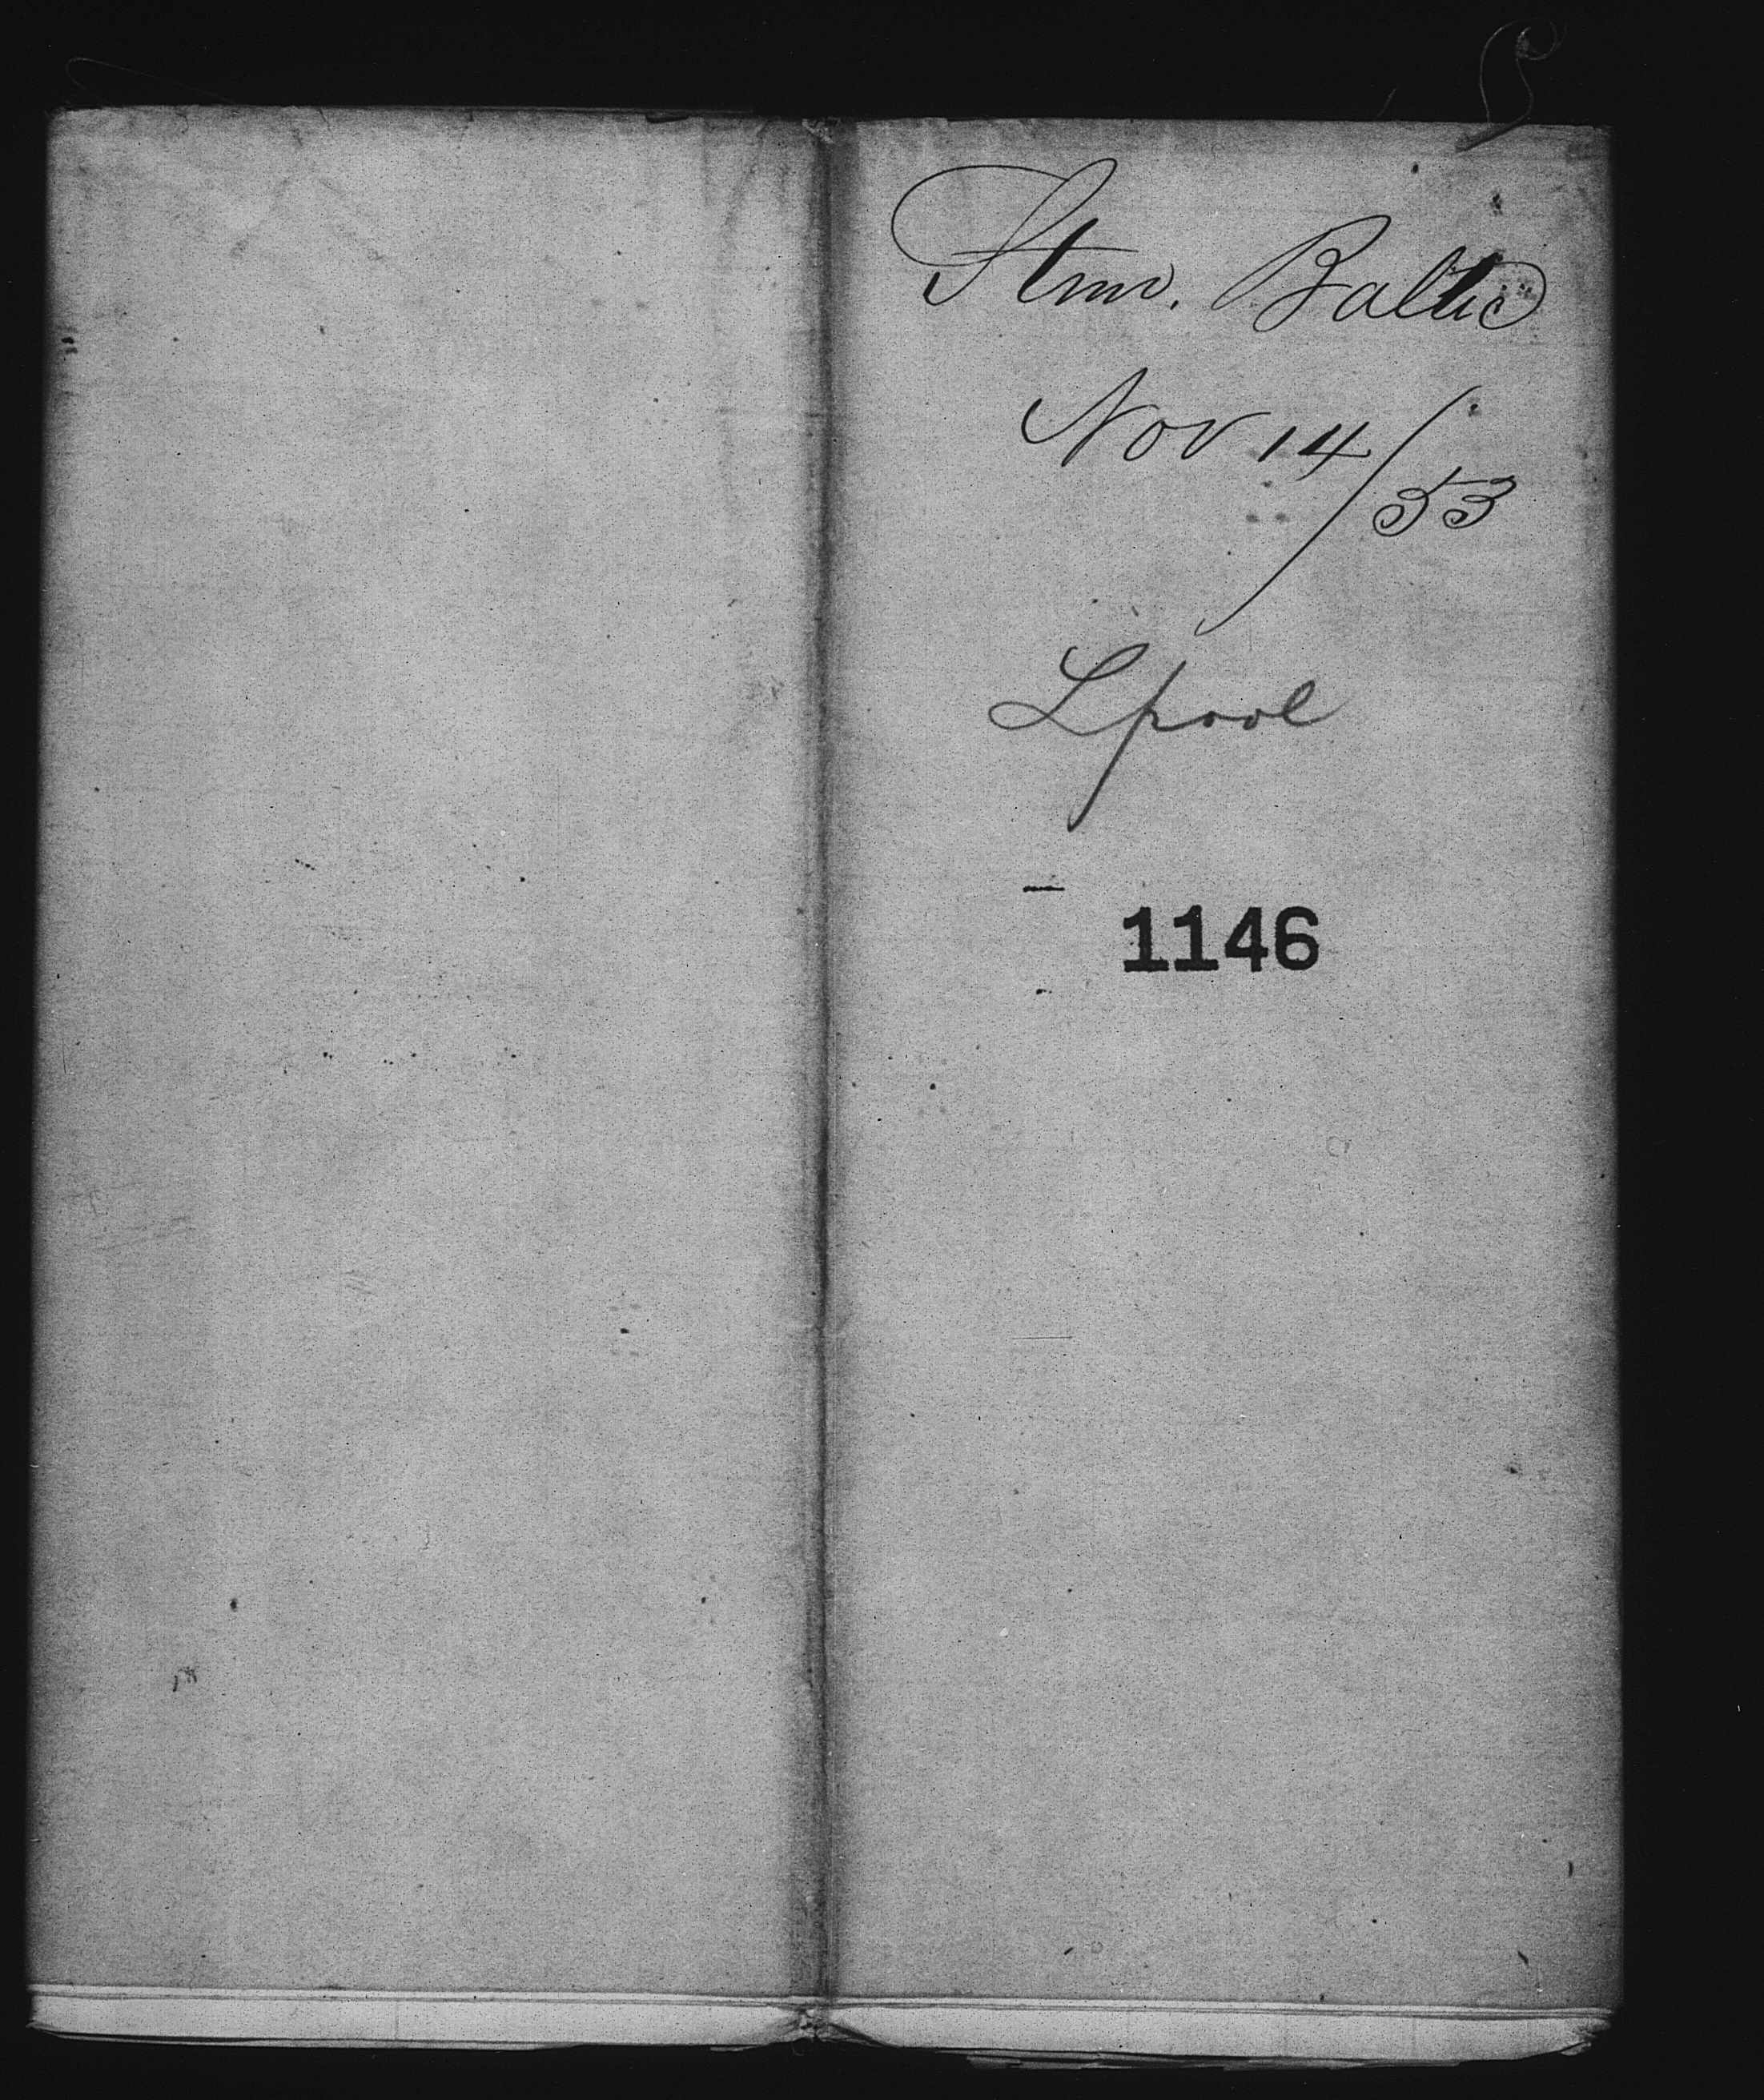 Stmr. Baltic
Nov 14/53
Lpool
1146